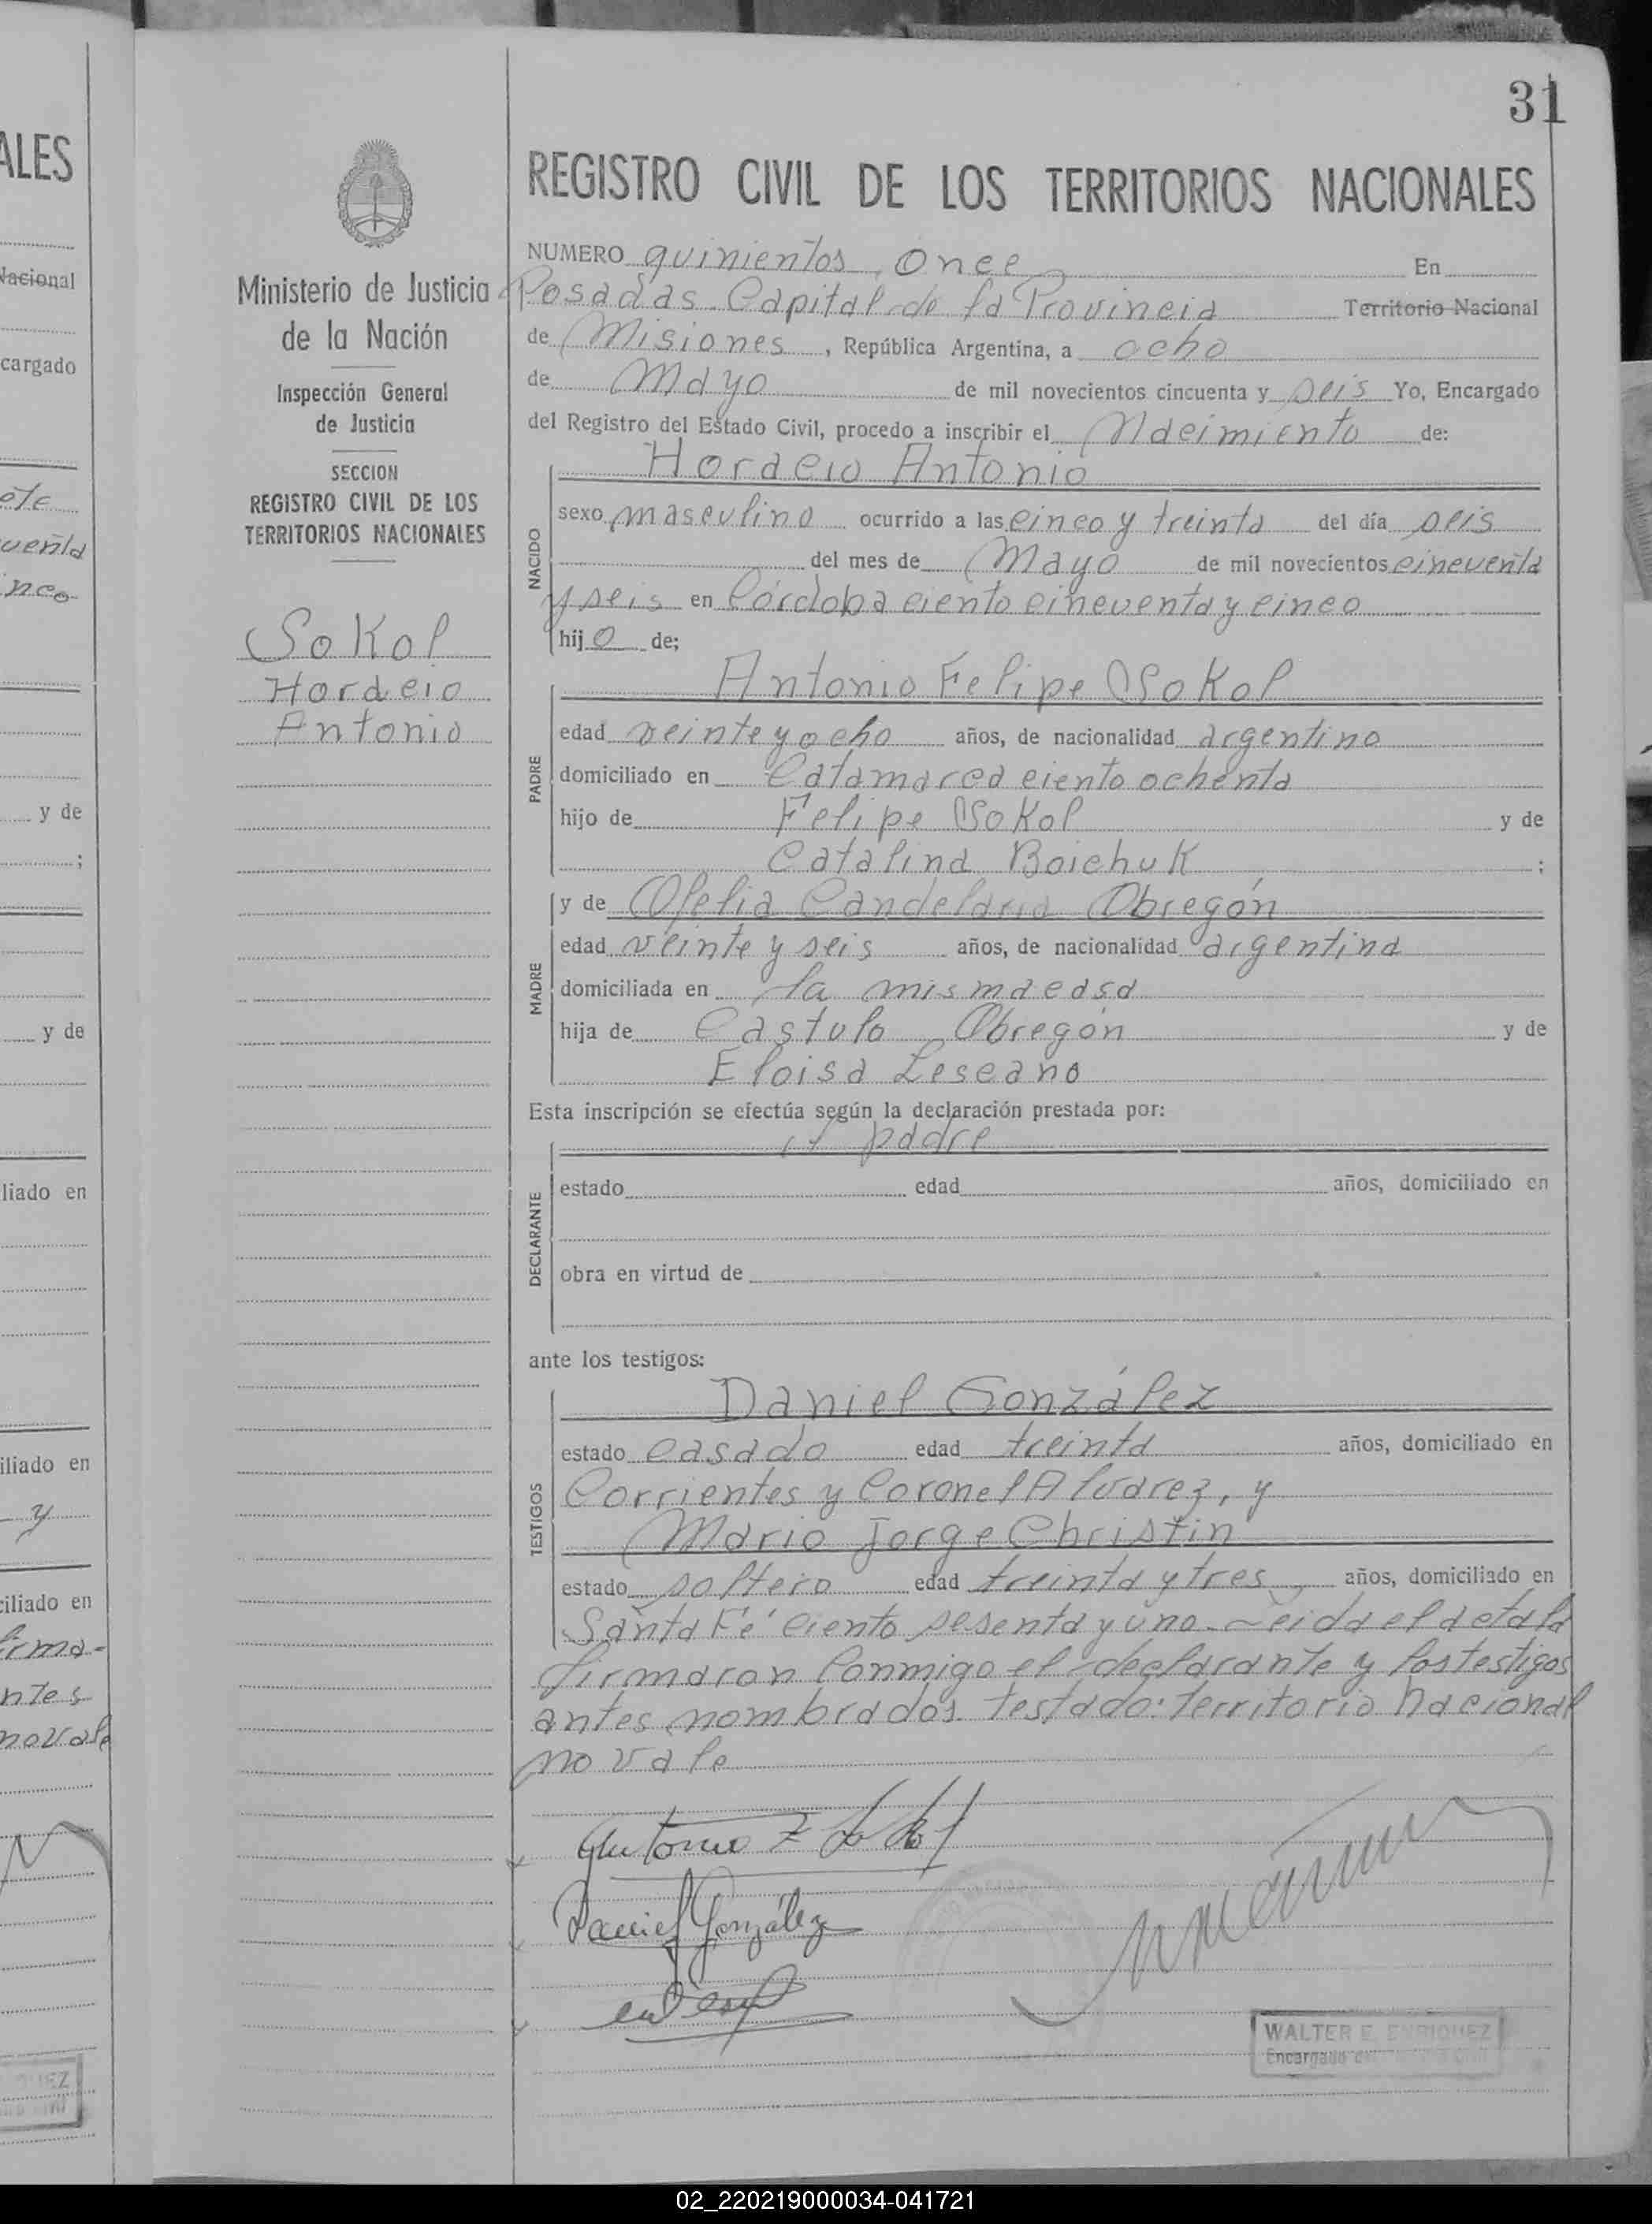 31
ALES
Nacional
cargado
ete
uenta
nco
y de
;
y de
liado en
iliado en
y
ciliado en
firma-
ntes
novale
Ministerio de Justicia
de la Nación
Inspección General
de Justicia
SECCION
REGISTRO CIVIL DE LOS
TERRITORIOS NACIONALES
Sokol
Horacio
Antonio
REGISTRO CIVIL DE LOS TERRITORIOS NACIONALES
NUMERO quinientos once En
Posadas Capital de la Provincia Territorio Nacional
de Misiones, República Argentina, a ocho
de Mayo de mil novecientos cincuenta y seis Yo, Encargado
del Registro del Estado Civil, procedo a inscribir el Nacimiento de:
Horacio Antonio
NACIDO
sexo masculino ocurrido a las cinco y treinta del día seis
del mes de Mayo de mil novecientos cincuenta
y seis en Córdoba ciento cincuenta y cinco
hijo de;
Antonio Felipe Sokol
PADRE
edad veinte y ocho años, de nacionalidad argentino
domiciliado en Catamarca ciento ochenta
hijo de Felipe Sokol y de
Catalina Boichuk ;
y de Ofelia Candelaria Obregón
MADRE
edad veinte y seis años, de nacionalidad argentina
domiciliada en la misma casa
hija de Cástulo Obregón y de
Eloisa Lescano
Esta inscripción se efectúa según la declaración prestada por:
el padre
DECLARANTE
estado edad años, domiciliado en
obra en virtud de
ante los testigos:
Daniel González
TESTIGOS
estado casado edad treinta años, domiciliado en
Corrientes y Coronel Alvarez, y
Mario Jorge Christin
estado soltero edad treinta y tres, años, domiciliado en
Santa Fé ciento sesenta y uno - Leida el acta la
firmaron conmigo el declarante y los testigos
antes nombrados. testado: territorio nacional
no vale
Antonio F Sokol
Daniel González
WALTER E. ENRIQUEZ
Encargado
02_220219000034-041721